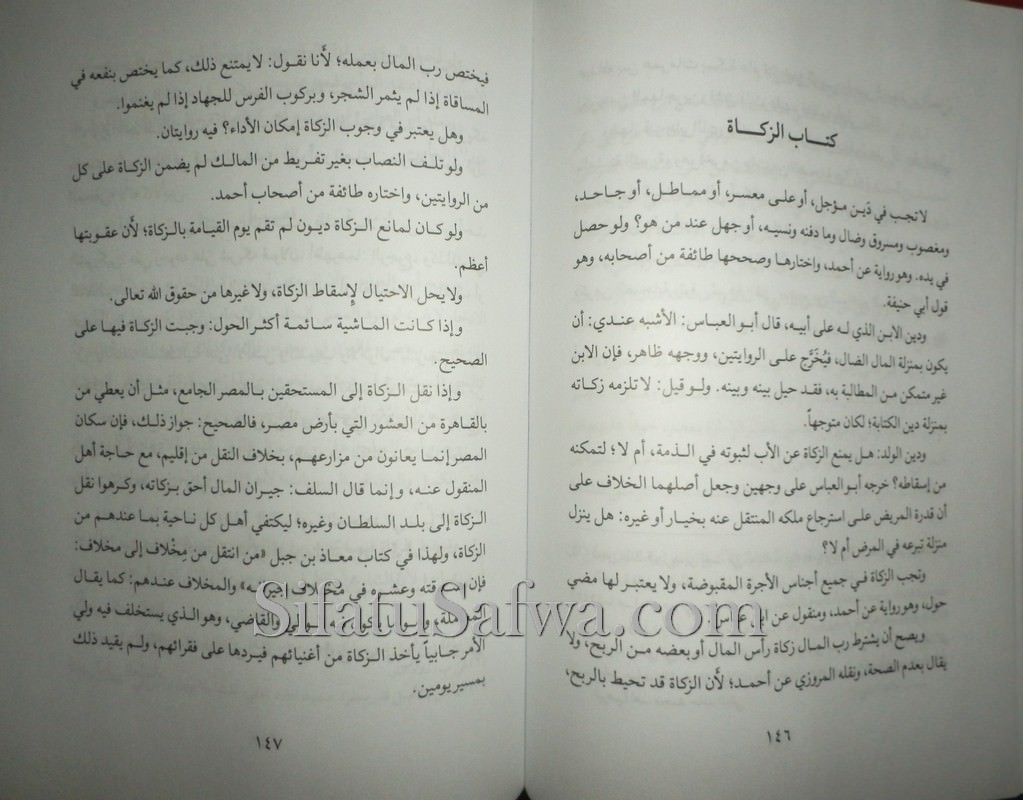 كتاب الزكاة
لا تجب في دَين مؤجل، أو على معسر، أو مماطل، أو جاحد،
ومغصوب ومسروق وضال وما دفنه ونسيه، أو جهل عند من هو؟ ولو حصل
في يده. وهو رواية عن أحمد، واختارها وصححها طائفة من أصحابه، وهو
قول أبي حنيفة.
ودين الابن الذي له على أبيه، قال أبو العباس: الأشبه عندي: أن
يكون بمنزلة المال الضال، فيُخَرَّج على الروايتين، ووجهه ظاهر، فإن الابن
غير متمكن من المطالبة به، فقد حيل بينه وبينه. ولو قيل: لا تلزمه زكاته
بمنزلة دين الكتابة؛ لكان متوجهاً.
ودين الولد: هل يمنع الزكاة عن الأب لثبوته في الذمة، أم لا؛ لتمكنه
من إسقاطه؟ خرجه أبو العباس على وجهين وجعل أصلهما الخلاف على
أن قدرة المريض على استرجاع ملكه المنتقل عنه بخيار أو غيره: هل ينزل
منزلة تبرعه في المرض أم لا؟
وتجب الزكاة في جميع أجناس الأجرة المقبوضة، ولا يعتبر لها مضي
حول، وهو رواية عن أحمد، ومنقول عن ابن عباس.
ويصح أن يشترط رب المال زكاة رأس المال أو بعضه من الربح، ولا
يقال بعدم الصحة، ونقله المروزي عن أحمد؛ لأن الزكاة قد تحيط بالربح،
١٤٦
فيختص رب المال بعمله؛ لأنا نقول: لا يمتنع ذلك، كما يختص بنفعه في
المساقاة إذا لم يثمر الشجر، وبركوب الفرس للجهاد إذا لم يغنموا.
وهل يعتبر في وجوب الزكاة إمكان الأداء؟ فيه روايتان.
ولو تلف النصاب بغير تفريط من المالك لم يضمن الزكاة على كل
من الروايتين، واختاره طائفة من أصحاب أحمد.
ولو كان لمانع الزكاة ديون لم تقم يوم القيامة بالزكاة؛ لأن عقوبتها
أعظم.
ولا يحل الاحتيال لإسقاط الزكاة، ولا غيرها من حقوق الله تعالى.
وإذا كانت الماشية سائمة أكثر الحول: وجبت الزكاة فيها على
الصحيح.
وإذا نقل الزكاة إلى المستحقين بالمصر الجامع، مثل أن يعطي من
بالقاهرة من العشور التي بأرض مصر، فالصحيح: جواز ذلك، فإن سكان
المصر إنما يعانون من مزارعهم، بخلاف النقل من إقليم، مع حاجة أهل
المنقول عنه، وإنما قال السلف: جيران المال أحق بزكاته، وكرهوا نقل
الزكاة إلى بلد السلطان وغيره؛ ليكتفي أهل كل ناحية بما عندهم من
الزكاة، ولهذا في كتاب معاذ بن جبل «من انتقل من مِخْلاف إلى مخلاف:
فإن صدقته وعشره في مخلاف جيرانه» والمخلاف عندهم: كما يقال
والقاضي، وهو الذي يستخلف فيه ولي
الأمر جابياً يأخذ الزكاة من أغنيائهم فيردها على فقرائهم، ولم يقيد ذلك
بمسير يومين.
١٤٧
SifatuSafwa.com